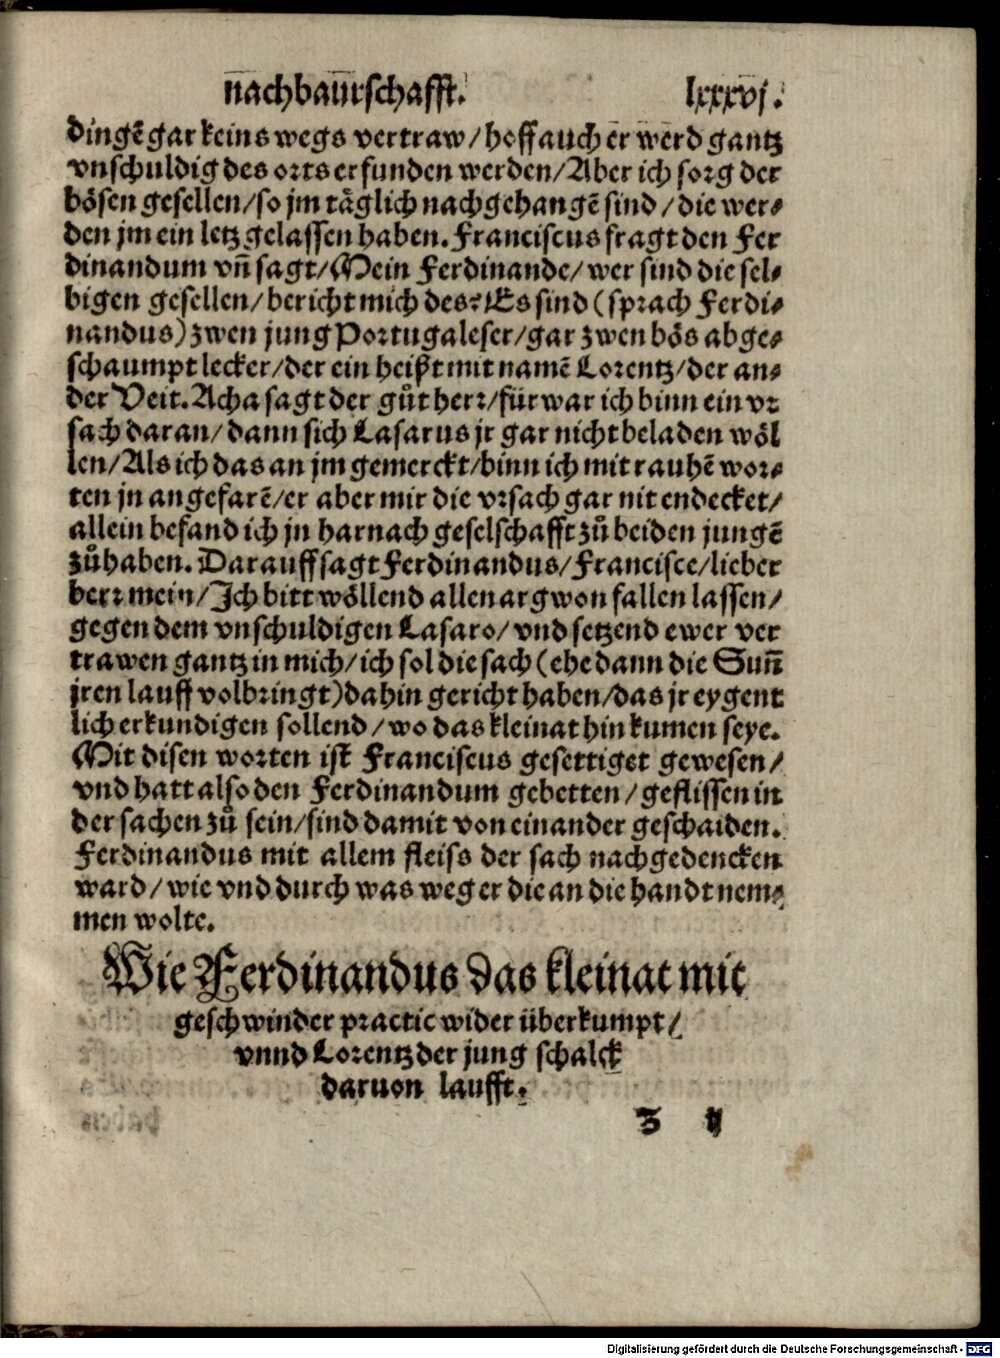 nachbaurschafft. lxxxvj.
dingē gar keins wegs vertraw / hoff auch er werd gantz
vnschuldig des orts erfunden werden / Aber ich sorg der
bösen gesellen / so jm täglich nachgehangē sind / die wer⸗
den jm ein letz gelassen haben. Franciscus fragt den Fer
dinandum vñ sagt / Mein Ferdinande / wer sind die sel⸗
bigen gesellen / bericht mich des? Es sind (sprach Ferdi⸗
nandus) zwen jung Portugaleser / gar zwen bös abge⸗
schaumpt lecker / der ein heißt mit namē Lorentz / der an⸗
der Veit. Acha sagt der gůt herr / fürwar ich binn ein vr
sach daran / dann sich Lasarus jr gar nicht beladen wöl
len / Als ich das an jm gemerckt / binn ich mit rauhē wor⸗
ten jn angefarē / er aber mir die vrsach gar nit endecket /
allein befand ich jn harnach geselschafft zů beiden jungē
zůhaben. Darauff sagt Ferdinandus / Francisce / lieber
herr mein / Ich bitt wöllend allen argwon fallen lassen /
gegen dem vnschuldigen Lasaro / vnd setzend ewer ver
trawen gantz in mich / ich sol die sach (ehe dann die Suñ
jren lauff volbringt) dahin gericht haben / das jr eygent
lich erkundigen sollend / wo das kleinat hin kumen seye.
Mit disen worten ist Franciscus gesettiget gewesen /
vnd hatt also den Ferdinandum gebetten / geflissen in
der sachen zů sein / sind damit von einander geschaiden.
Ferdinandus mit allem fleiss der sach nachgedencken
ward / wie vnd durch was weg er die an die handt nem⸗
men wolte.
Wie Ferdinandus das kleinat mit
geschwinder practic wider überkumpt /
vnnd Lorentz der jung schalck
daruon laufft.
Z ij
Digitalisierung gefördert durch die Deutsche Forschungsgemeinschaft - DFG